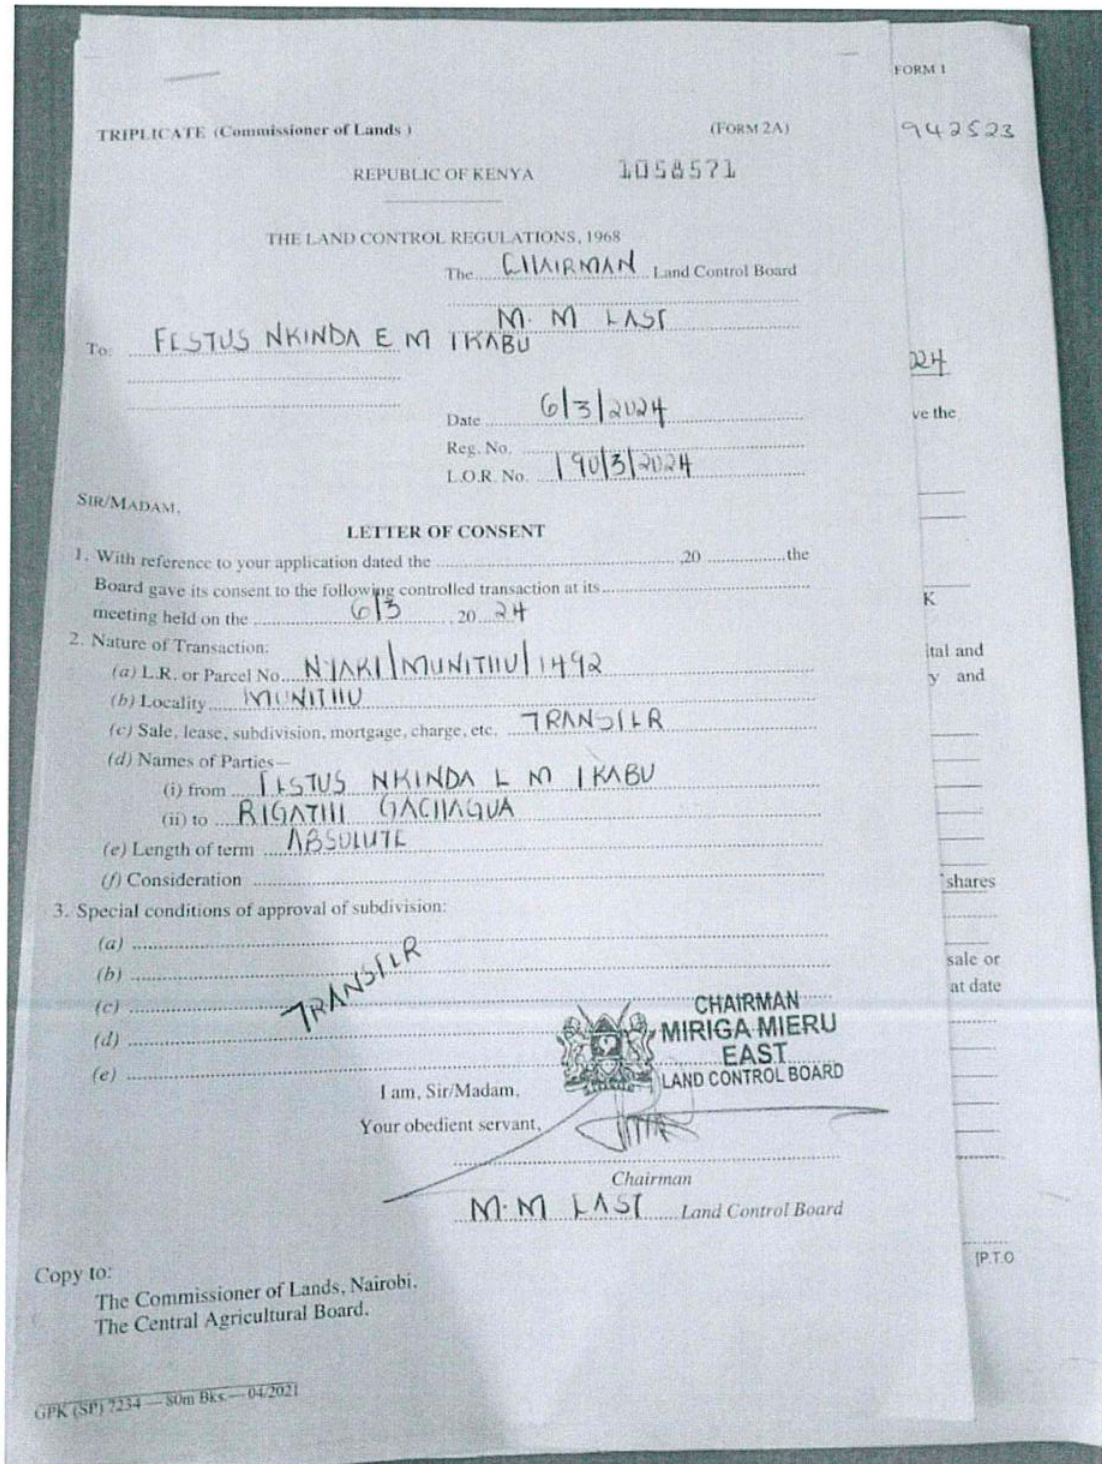 FORM 1
942523
TRIPLICATE (Commissioner of Lands)
(FORM 2A)
REPUBLIC OF KENYA
1058571
THE LAND CONTROL REGULATIONS, 1968
The CHAIRMAN Land Control Board
M. M EAST
To: FESTUS NKINDA E M IKABU
Date 6/3/2024
Reg. No.
L.O.R. No. 190/3/2024
SIR/MADAM,
LETTER OF CONSENT
1. With reference to your application dated the ,20 the
Board gave its consent to the following controlled transaction at its
meeting held on the 6/3, 20 24
2. Nature of Transaction:
(a) L.R. or Parcel No. NYAKI/MUNITHU/1492
(b) Locality MUNITHU
(c) Sale, lease, subdivision, mortgage, charge, etc. TRANSFER
(d) Names of Parties—
(i) from FESTUS NKINDA E M IKABU
(ii) to RIGATHI GACHAGUA
(e) Length of term ABSOLUTE
(f) Consideration
3. Special conditions of approval of subdivision:
(a)
(b)
(c)
(d)
(e)
TRANSFER
CHAIRMAN
MIRIGA MIERU
EAST
LAND CONTROL BOARD
I am, Sir/Madam,
Your obedient servant,
Chairman
M. M EAST Land Control Board
Copy to:
The Commissioner of Lands, Nairobi.
The Central Agricultural Board.
GPK (SP) 7234 — 80m Bks.— 04/2021
24
ve the
K
ital and
y and
shares
sale or
at date
[P.T.O